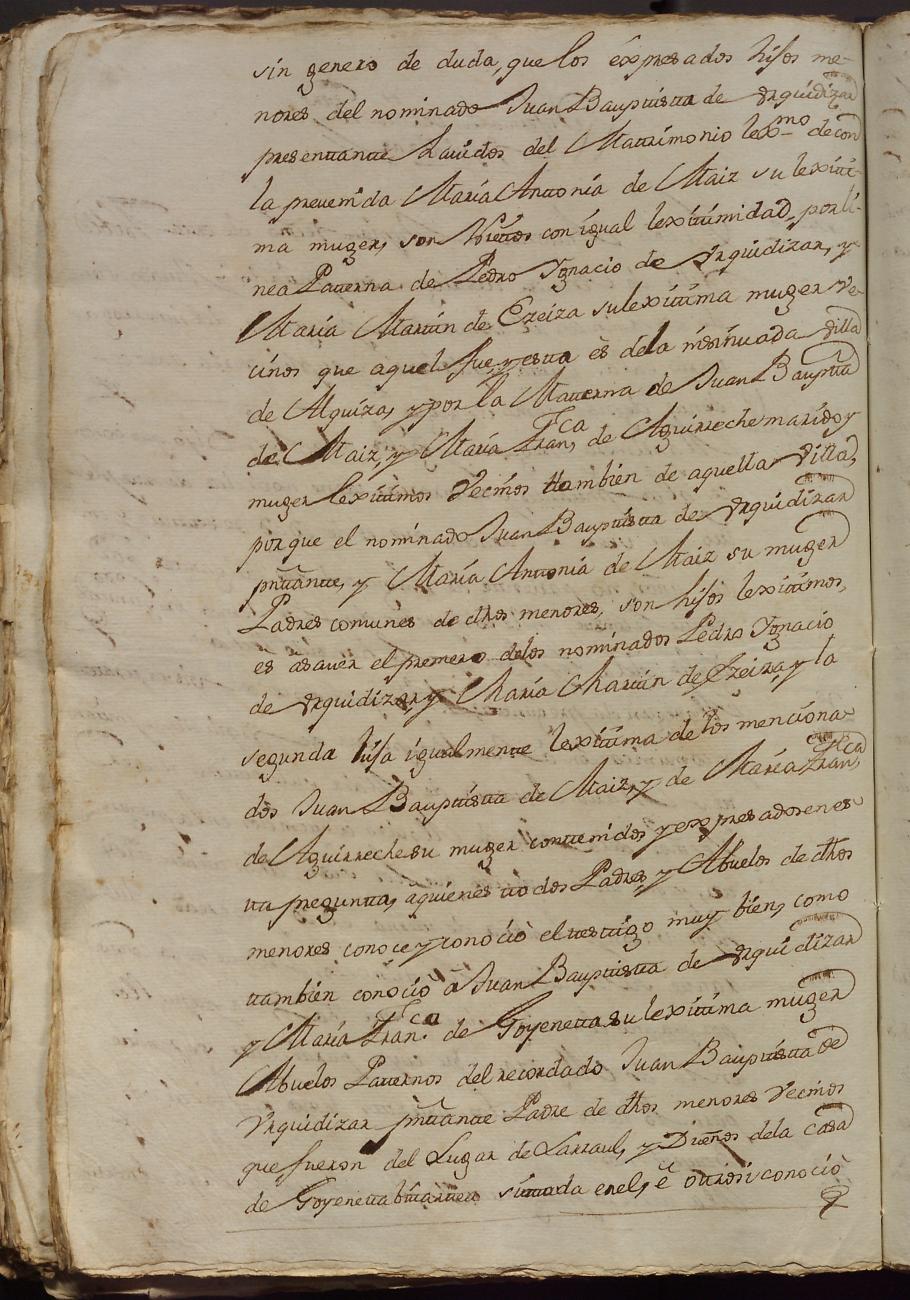 sin genero de duda, que los expresados hijos me-
nores del nominado Juan Bauptista de Vrquidizar
presentante havidos del Matrimonio lexmo. de con
la prevenida María Antonia de Maiz su lexiti-
ma muger, son Nietos con igual lexitimidad, por lí-
nea Paterna de Pedro Ygnacio de Vrquidizar, y
María Martín de Ezeiza su lexitima muger Ve-
cinos que aquel fue, y esta ès de la insinuada Villa
de Alquiza, y por la Materna de Juan Bauptta
de Maiz, y María Franca, de Aguirreche marido y
muger lexitimos Vecinos ttambien de aquella Villa,
porque el nominado Juan Bauptista de Vrquidizar
pntante, y María Antonia de Maiz su muger
Padres comunes de dhos menores, son hijos lexitimos,
es asaver el premero delos nominados Pedro Ygnacio
de Vrquidizar, y María Martín de Ezeiza, y la
segunda hija igualmente lexitima de los menciona-
dos Juan Bauptista de Maiz, y de María Franca,
de Aguirreche su muger contenidos y expresados en es-
ta pregunta, aquienes todos Padres, y Abuelos de dhos
menores conoce y conoció el testigo muy bien, como
tambien conoció à Juan Bauptista de Vrquidizar
y María Franca. de Goyenetta su lexitima muger
Abuelos Paternos del recordado Juan Bauptista de
Vrquidizar pntante Padre de dhos menores Vecinos
que fueron del Lugar de Larraul, y Dueños dela casa
de Goyenetta situada enel, è otrosi conoció